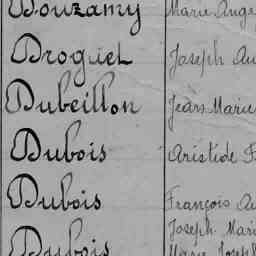 Douzamy Marie Ange
Droguet Joseph Au
Dubeillon Jean Marie
Dubois Aristide F
Dubois François Au
Joseph Mari
Dubois Marie Josep